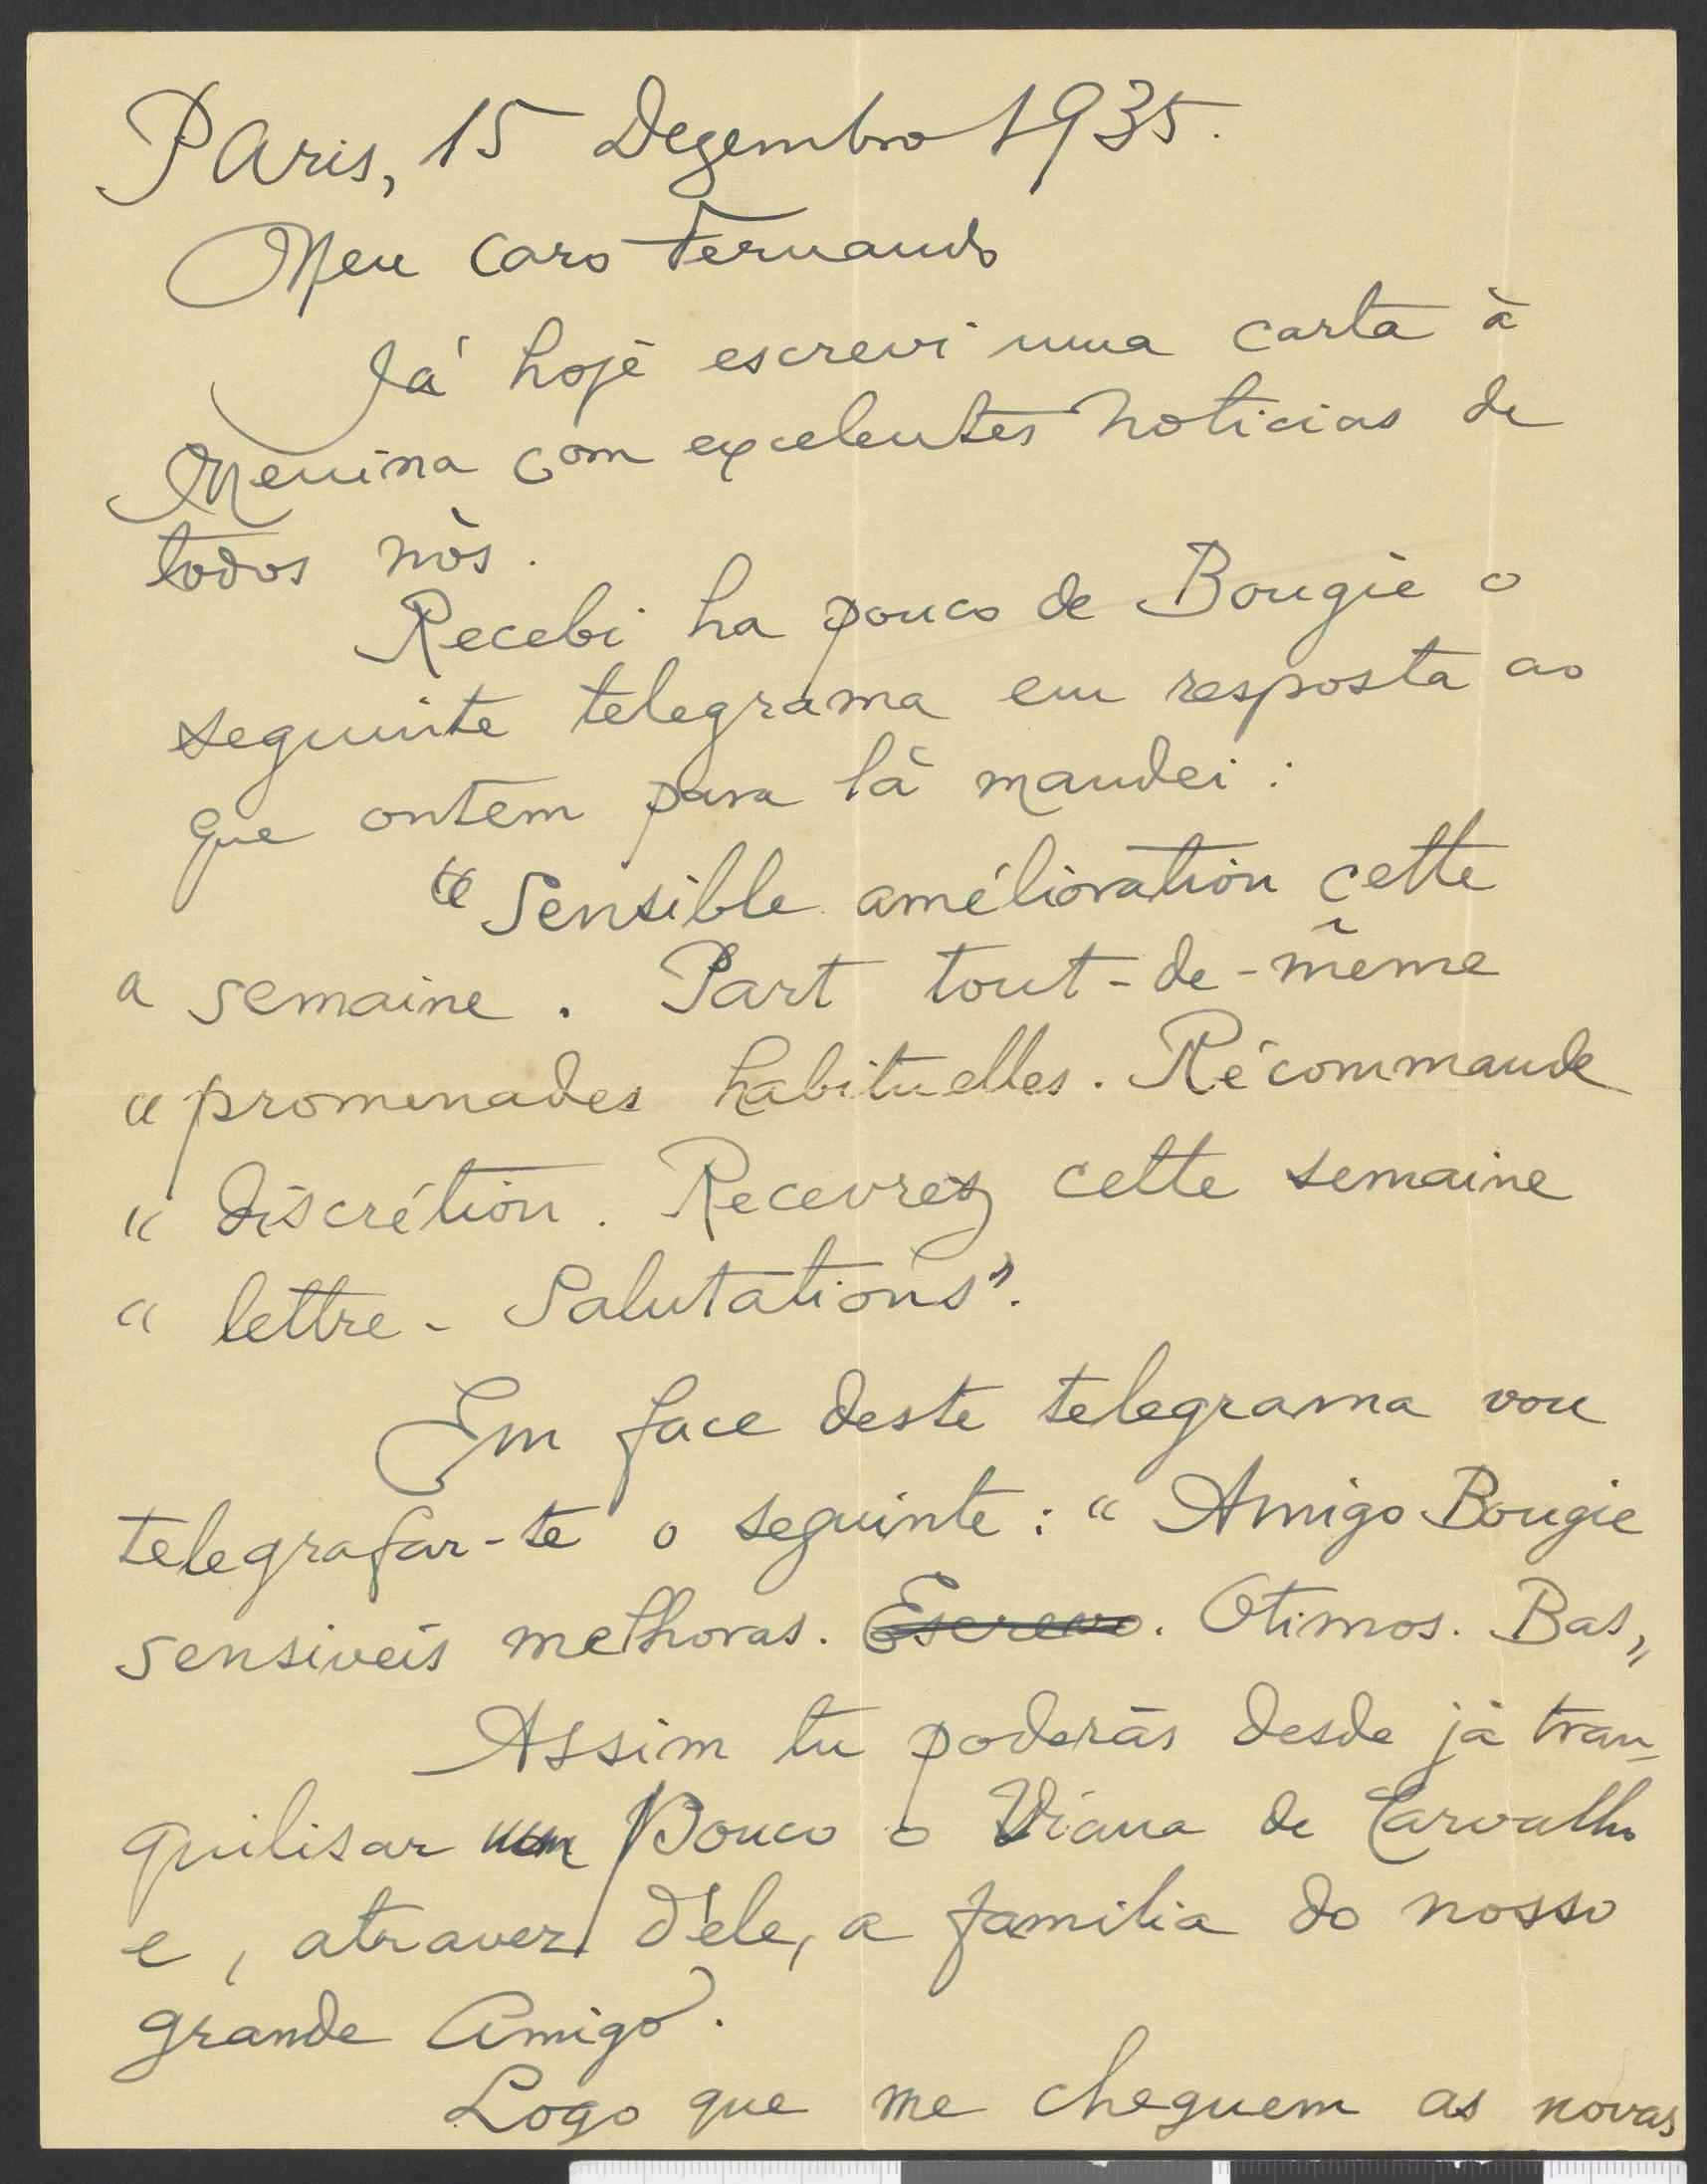 Paris, 15 Dezembro 1935.
Meu caro Fernando
Já hoje escrevi uma carta à
Menina com excelentes noticias de
todos nòs.
Recebi ha pouco de Bougie o
seguinte telegrama em resposta ao
que ontem para là mandei:
"Sensible amélioration cette
" semaine. Part tout-de-même
" promenades habituelles. Récommande
" discrétion. Recevrez cette semaine
" lettre - Salutations".
Em face deste telegrama vou
telegrafar-te o seguinte: "Amigo Bougie
sensiveis melhoras. Escrevo. Otimos. Bas"
Assim tu poderàs desde jà tran-
quilisar um pouco o Viana de Carvalho
e, atravez d'ele, a familia do nosso
grande Amigo.
Logo que me cheguem as novas